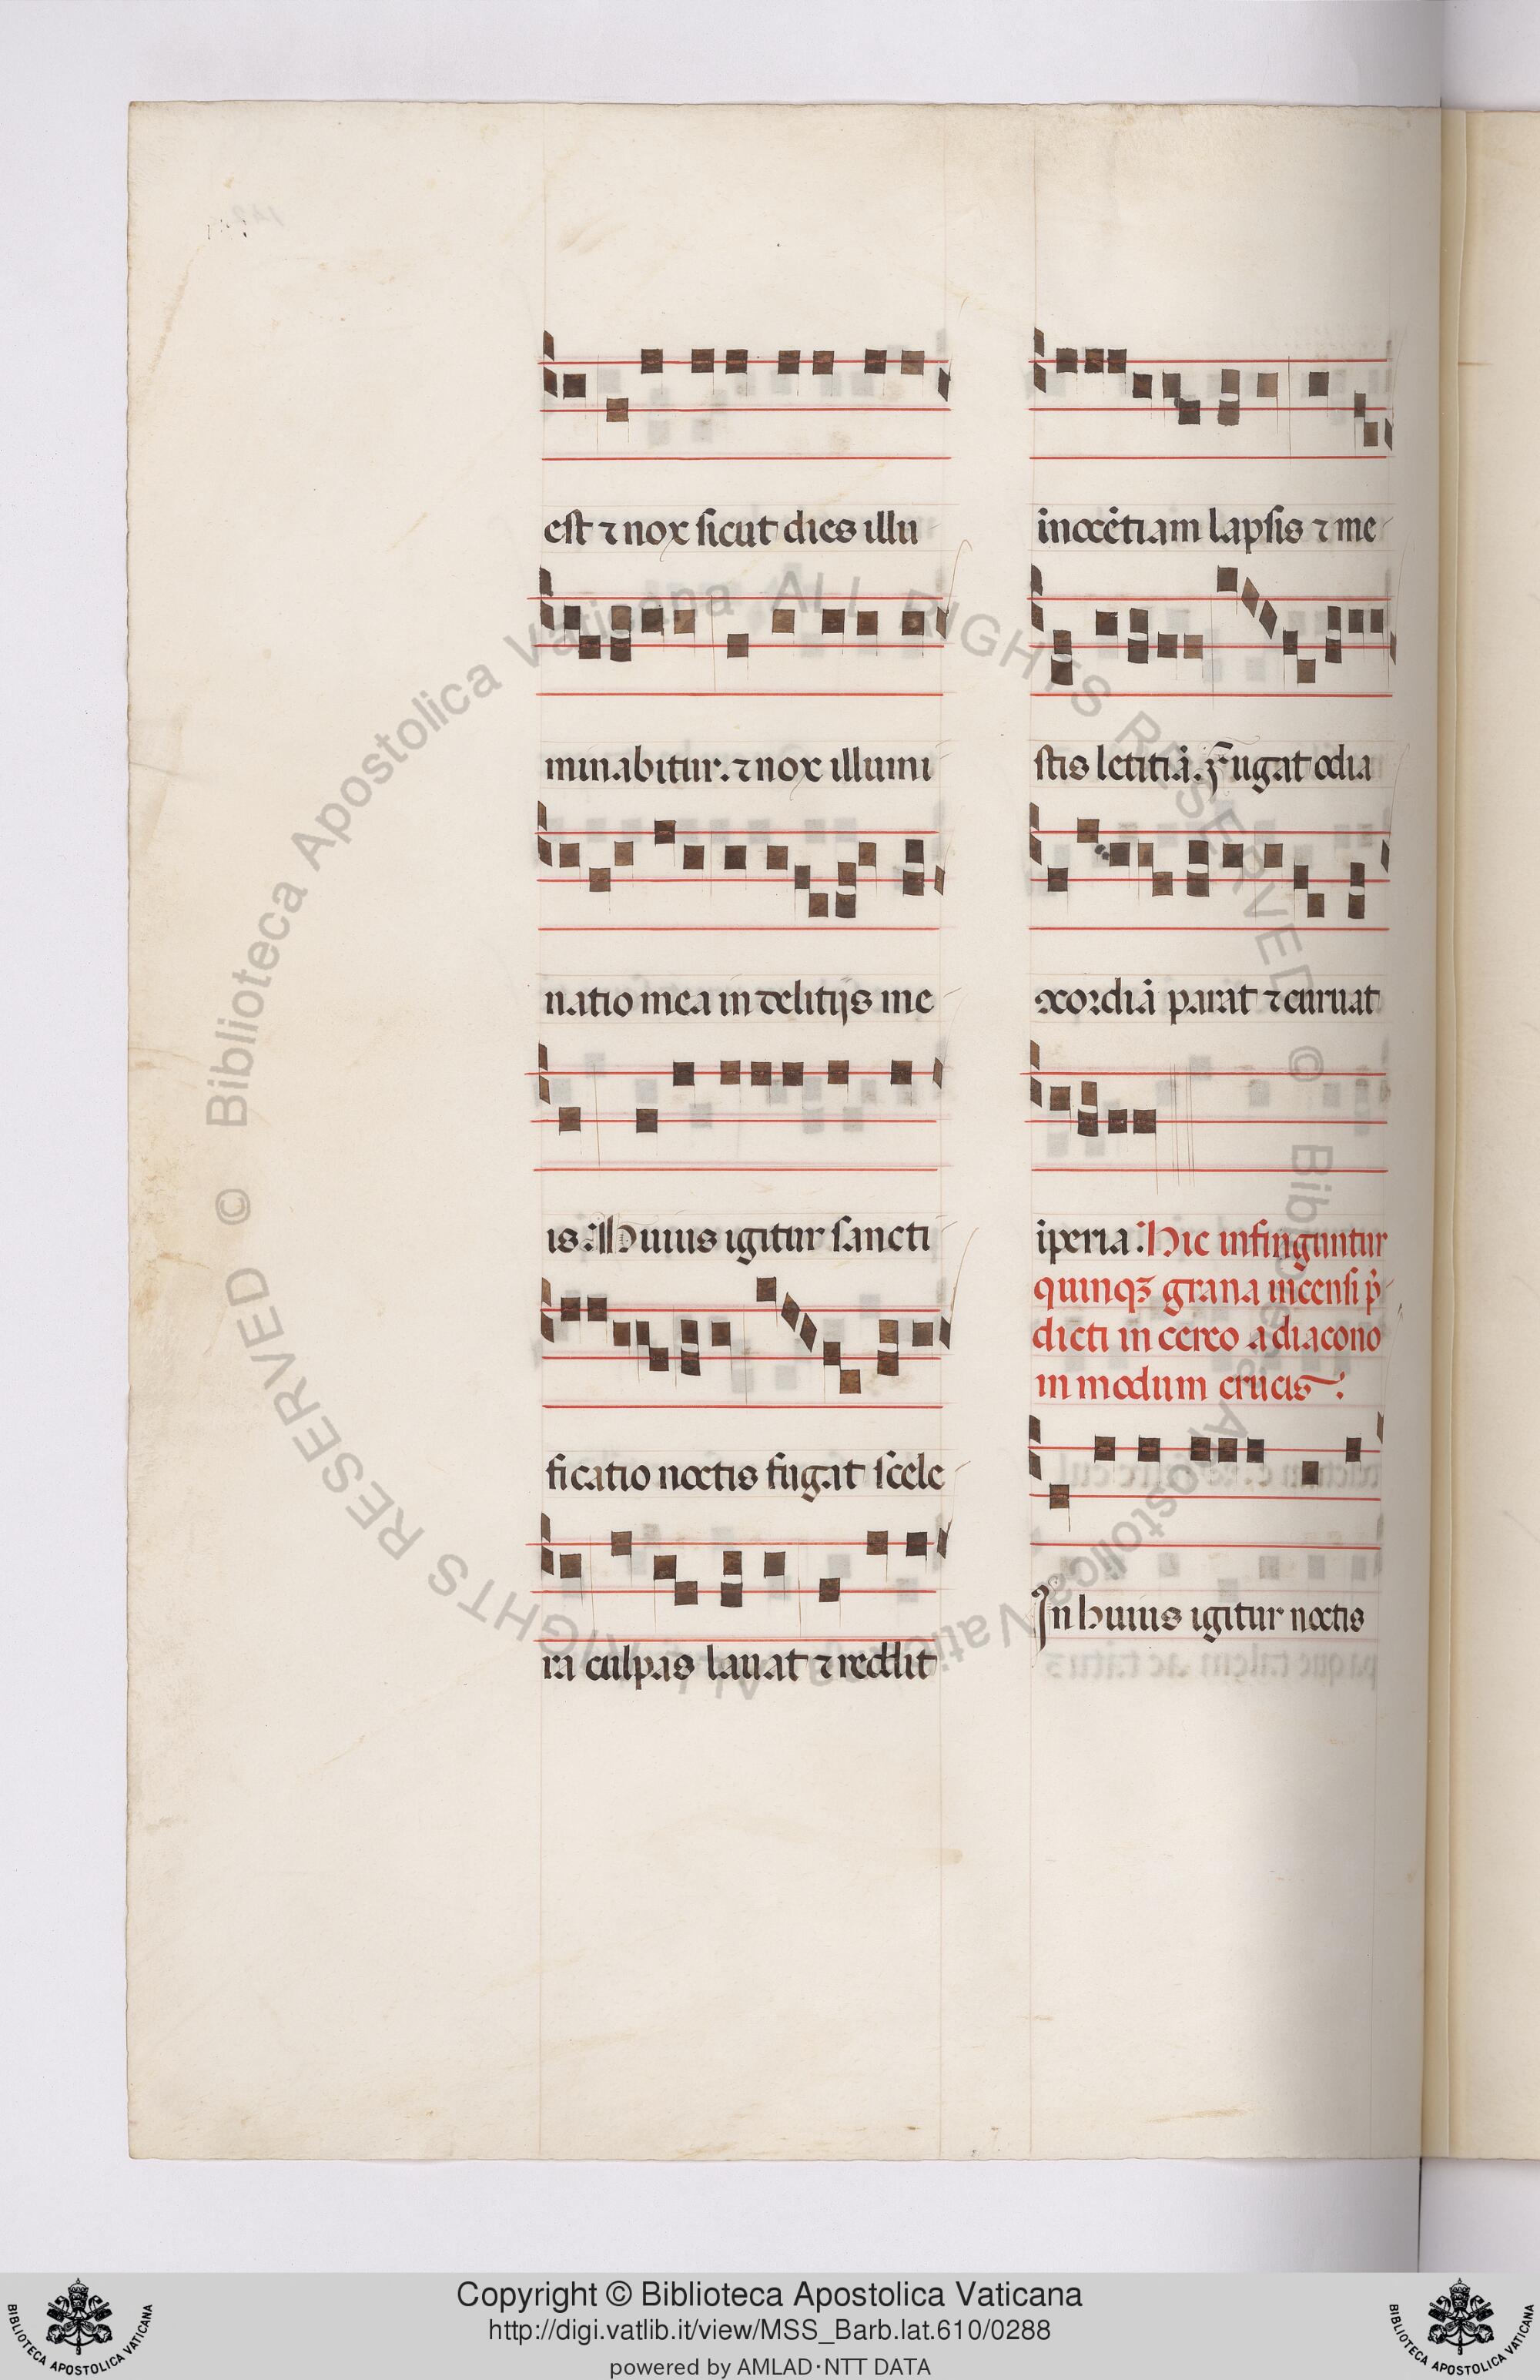 est ⁊ nox sicut dies illu
minabitur. ⁊ nox illumi
natio mea in delitijs me
is. Huius igitur sancti
ficatio noctis fugat scele
ra culpas lauat ⁊ reddit
inocẽtiam lapsis ⁊ me
stis letitiã. Fugat odia
ↄcordiã parat ⁊ curuat
iperia. Hic infinguntur
quinqꝫ grana incensi p̃
dicti in cereo a diacono
in modum crucis.
In huius igitur noctis
© Biblioteca Apostolica Vaticana ALL RIGHTS RESERVED © Biblioteca Apostolica Vaticana ALL RIGHTS RESERVED
Copyright © Biblioteca Apostolica Vaticana
http://digi.vatlib.it/view/MSS_Barb.lat.610/0288
powered by AMLAD·NTT DATA
BIBLIOTECA APOSTOLICA VATICANA
BIBLIOTECA APOSTOLICA VATICANA